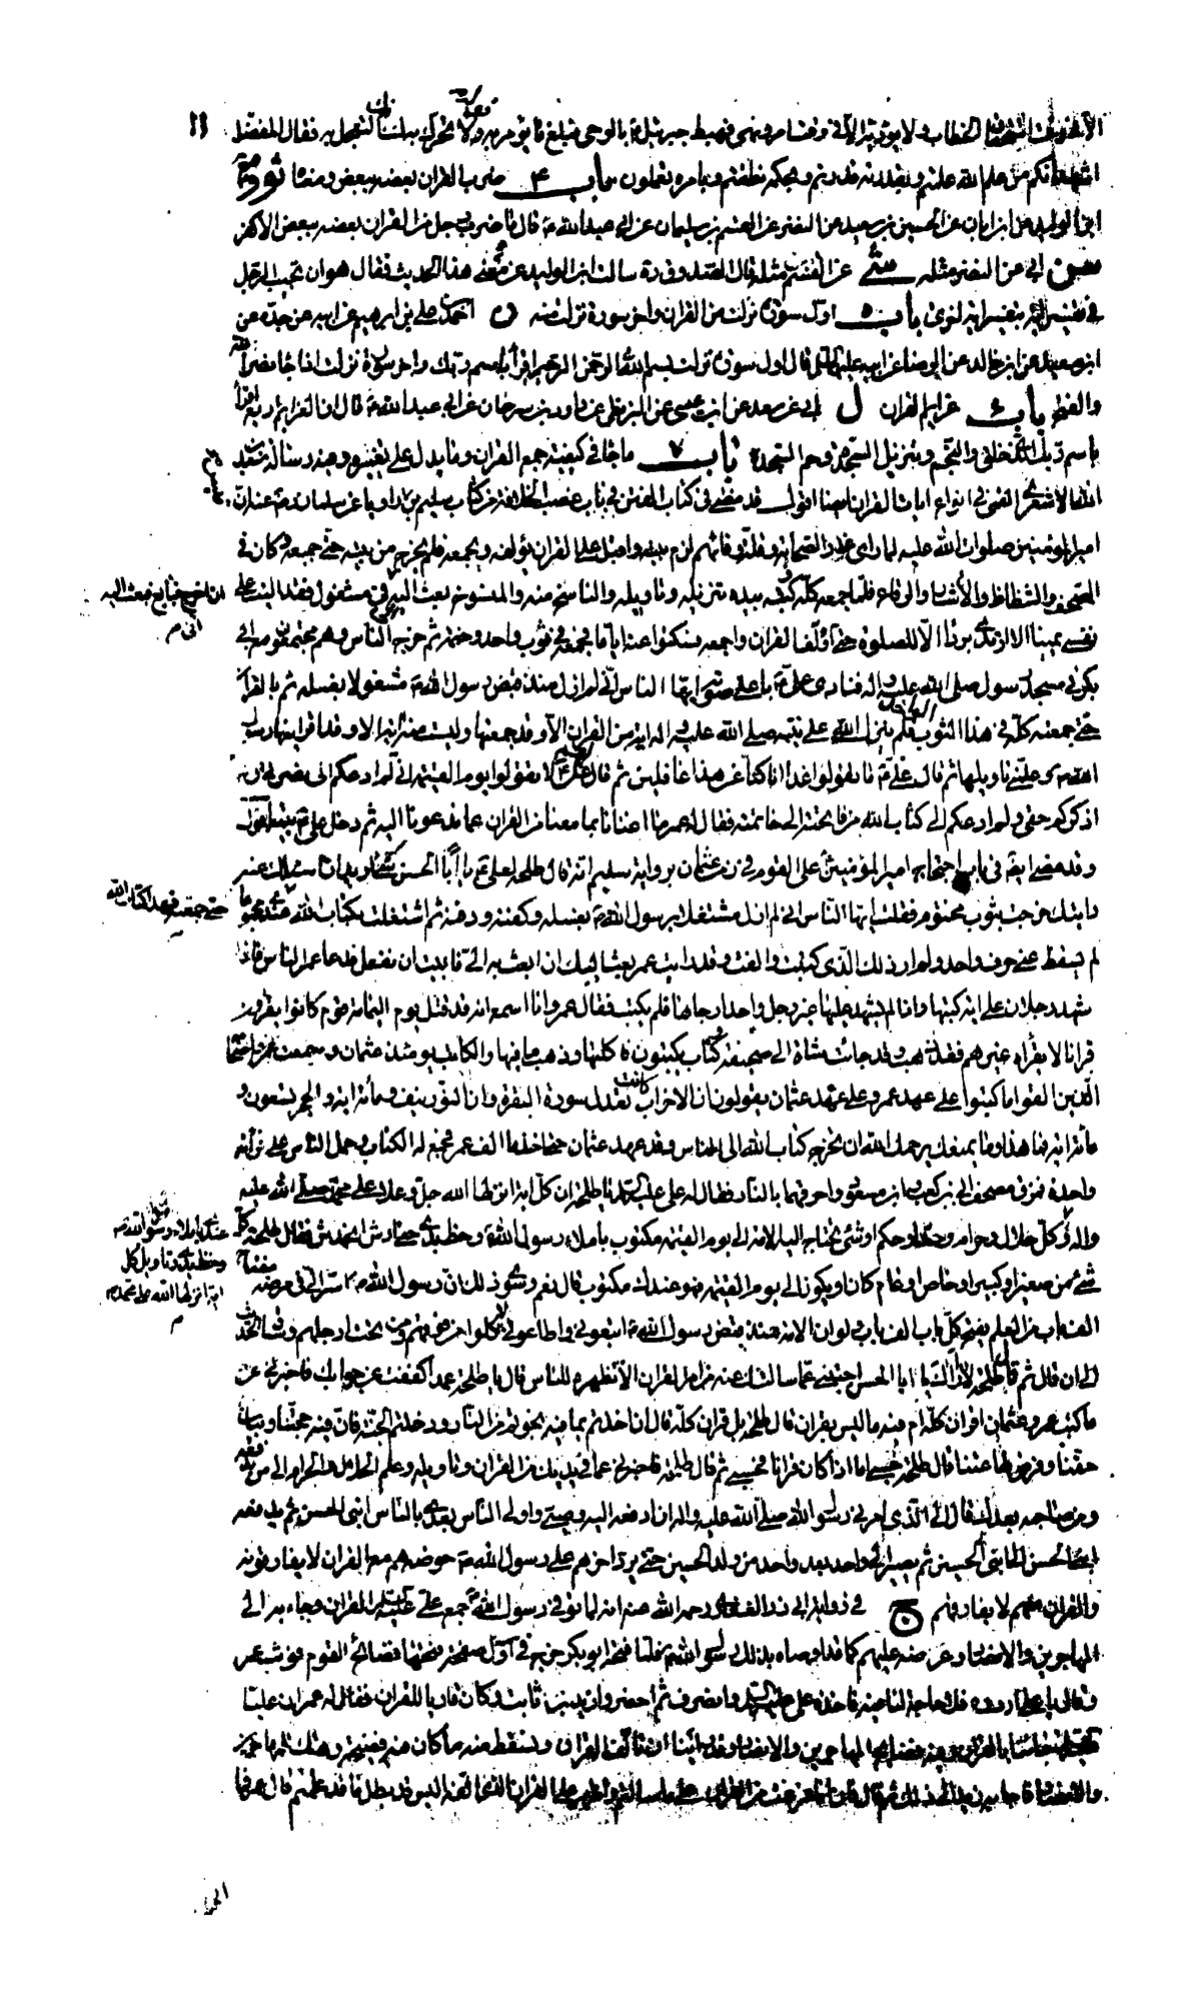 ١١
الخطاب ولا يؤديه الا في وقت امر ونهي فهبط جبرئيل ع بالوحي فبلغ ما يؤمر به وقوله لا تحرك به لسانك لتعجل به فقال المفضل
اشهد انكم من علم الله علمتم وبقدرته قدرتم وبحكمه نطقتم وبامره تعملون باب ٤ ضرب القران بعضه ببعض ومعناه ثو
ابن الوليد عن ابن ابان عن الحسين بن سعيد عن النضر عن القسم بن سليمان عن ابي عبد الله ع قال ما ضرب رجل من القران بعضه ببعض الا كفر
سن ابي عن النضر مثله شي عن القسم مثله قال الصدوق ره سالت ابن الوليد عن معنى هذا الحديث فقال هو ان تجيب الرجل
في تفسير اية بتفسير اية اخرى باب ٥ اول سورة نزلت من القران واخر سورة نزلت منه ن احمد بن علي بن ابراهيم عن ابيه عن جده عن
ابن معبد عن ابن خالد عن الرضا عن ابيه عليهما السلم قال اول سورة نزلت بسم الله الرحمن الرحيم اقرأ باسم ربك واخر سورة نزلت اذا جاء نصر الله
والفتح باب ٦ عزائم القران ل ابي عن سعد عن ابن عيسى عن البزنطي عن داود بن سرحان عن ابي عبد الله ع قال ان العزائم اربع اقرأ
باسم ربك الذي خلق والنجم وتنزيل السجدة وحم السجدة باب ٧ ما جاء في كيفية جمع القران وما يدل على تغييره وفيه رسالة سعد بن
عبد الله الاشعري القمي في انواع ايات القران ايضا اقول قد مضى في كتاب الفتن في باب غصب الخلافة من كتاب سليم بن قيس راويا عن سلمان رضه عنه ان
امير المؤمنين صلوات الله عليه لما راى غدر الصحابة وقلة وفائهم لزم بيته واقبل على القران يؤلفه ويجمعه فلم يخرج من بيته حتى جمعه وكان في
الصحف والشظاظ والأشار والرقاع فلما جمعه كله وكتبه بيده تنزيله وتاويله والناسخ منه والمنسوخ بعث اليه اني مشغول فقد اليت على
ان اخرج فبايع فبعث اليه
نفسي يمينا الا ارتدي برداء الا للصلوة حتى اؤلف القران واجمعه فسكتوا عنه اياما فجمعه في ثوب واحد وختمه ثم خرج الى الناس وهم مجتمعون مع ابي
بكر في مسجد رسول صلى الله عليه واله فنادى علي ع باعلى صوته ايها الناس اني لم ازل منذ قبض رسول الله ص مشغولا بغسله ثم بالقران
حتى جمعته كله في هذا الثوب الواحد فلم ينزل الله على نبيه صلى الله عليه واله اية من القران الا وقد جمعتها وليست منه اية الا وقد اقرانيها رسول
الله ص وعلمني تاويلها ثم قال علي ع لئلا تقولوا غدا انا كنا عن هذا غافلين ثم قال لهم علي ع لا تقولوا يوم القيمة اني لم ادعكم الى نصرتي ولم
اذكركم حقي ولم ادعكم الى كتاب الله من فاتحته الى خاتمته فقال له عمر ما اغنانا بما معنا من القران عما تدعونا اليه ثم دخل علي ع بيته اقول
وقد مضى ايضا في باب احتجاج امير المؤمنين ع على القوم في زمن عثمان برواية سليم انه قال طلحة لعلي ع يا ابا الحسن شيء اريد ان اسالك عنه
رايتك خرجت بثوب مختوم فقلت ايها الناس اني لم ازل مشتغلا برسول الله ص بغسله وكفنه ودفنه ثم اشتغلت بكتاب الله عندي مجموعا
حتى جمعته فهذا كتاب الله
لم يسقط عني حرف واحد ولم ار ذلك الذي كتبت والفت وقد رايت عمر بعث اليك ان ابعث به الي فابيت ان تفعل فدعا عمر الناس فاذا
شهد رجلان على اية كتبها وان لم يشهد عليها غير رجل واحد ارجاها فلم يكتب فقال عمر وانا اسمع انه قد قتل يوم اليمامة قوم كانوا يقرؤن
قرانا لا يقراه غيرهم فقد ذهب وقد جاءت شاة الى صحيفة وكتاب يكتبون فاكلتها وذهب ما فيها والكاتب يومئذ عثمان وسمعت عمر واصحابه
الذين الفوا ما كتبوا على عهد عمر وعلى عهد عثمان يقولون ان الاحزاب كانت تعدل سورة البقرة وان النور نيف ومائة اية والحجر تسعون و
مائة اية فما هذا وما يمنعك يرحمك الله ان تخرج كتاب الله الى الناس وقد عهد عثمان حين اخذ ما الف عمر فجمع له الكتاب وحمل الناس على قراءة
واحدة فمزق مصحف ابي بن كعب وابن مسعود واحرقهما بالنار فقال له علي عليه السلم يا طلحة ان كل اية انزلها الله جل وعلا على محمد صلى الله عليه
واله وكل حلال وحرام وحد او حكم او شيء تحتاج اليه الامة الى يوم القيمة مكتوب باملاء رسول الله ص وخط يدي حتى ارش الخدش فقال طلحة كل
عندي باملاء رسول الله ص وخط يدي وتاويل كل اية انزلها الله على محمد ص
شيء من صغير او كبير او خاص او عام كان او يكون الى يوم القيمة فهو عندك مكتوب قال نعم وسوى ذلك ان رسول الله ص اسر الي في مرضه مفتاح
الف باب من العلم يفتح كل باب الف باب ولو ان الامة منذ قبض رسول الله ص اتبعوني واطاعوني لاكلوا من فوقهم ومن تحت ارجلهم وساق الحديث
الى ان قال ثم قال طلحة لا اراك يا ابا الحسن اجبتني عما سالتك عنه من امر القران الا تظهره للناس قال يا طلحة عمدا كففت عن جوابك فاخبرني عن
ما كتب عمر وعثمان اقران كله ام فيه ما ليس بقران قال طلحة بل قران كله قال ان اخذتم بما فيه نجوتم من النار ودخلتم الجنة فان فيه حجتنا وبيان
حقنا وفرض طاعتنا قال طلحة حسبي اما اذا كان قرانا فحسبي ثم قال طلحة فاخبرني عما في يديك من القران وتاويله وعلم الحلال والحرام الى من تدفعه
ومن صاحبه بعدك قال الى الذي امرني رسول الله صلى الله عليه واله ان ادفعه اليه وصيي واولى الناس بعدي بالناس ابني الحسن ثم يدفعه
ابني الحسن الى ابني الحسين ثم يصير الى واحد بعد واحد من ولد الحسين حتى يرد اخرهم على رسول الله ص حوضه هم مع القران لا يفارقونه
والقران معهم لا يفارقهم ج في رواية ابي ذر الغفاري رحمه الله عنه انه لما توفي رسول الله ص جمع علي عليه السلم القران وجاء به الى
المهاجرين والانصار وعرضه عليهم كما قد اوصاه بذلك رسول الله ص فلما فتحه ابو بكر خرج في اول صفحة فتحها فضائح القوم فوثب عمر
وقال يا علي اردده فلا حاجة لنا فيه فاخذه علي عليه السلم وانصرف ثم احضر زيد بن ثابت وكان قاريا للقران فقال له عمر ان عليا
جاءنا بالقران وفيه فضائح المهاجرين والانصار وقد راينا ان نؤلف القران ونسقط منه ما كان فيه فضيحة وهتك للمهاجرين
والانصار فاجابه زيد الى ذلك ثم قال فان انا فرغت من القران على ما سالتم واظهر علي القران الذي الفه اليس قد بطل ما قد عملتم قال عمر فما